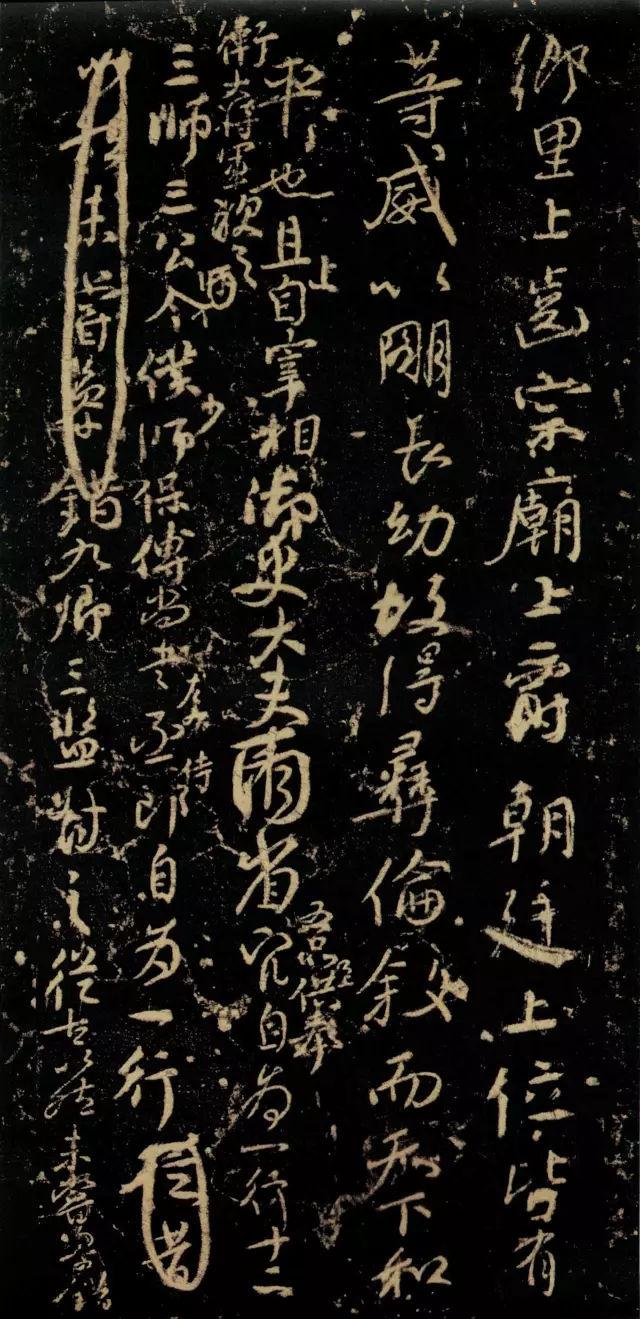 鄉里上齒宗廟上爵朝廷上位皆有
等威以明長幼故得彝倫敘而天下和
平也且上自宰相御史大夫兩省五品已上供奉官自為一行十二
衛大將軍次之
三師三公令僕少師保傅尚書左右丞侍郎自為一行
未嘗參錯九卿三監對之從古以然未嘗參錯